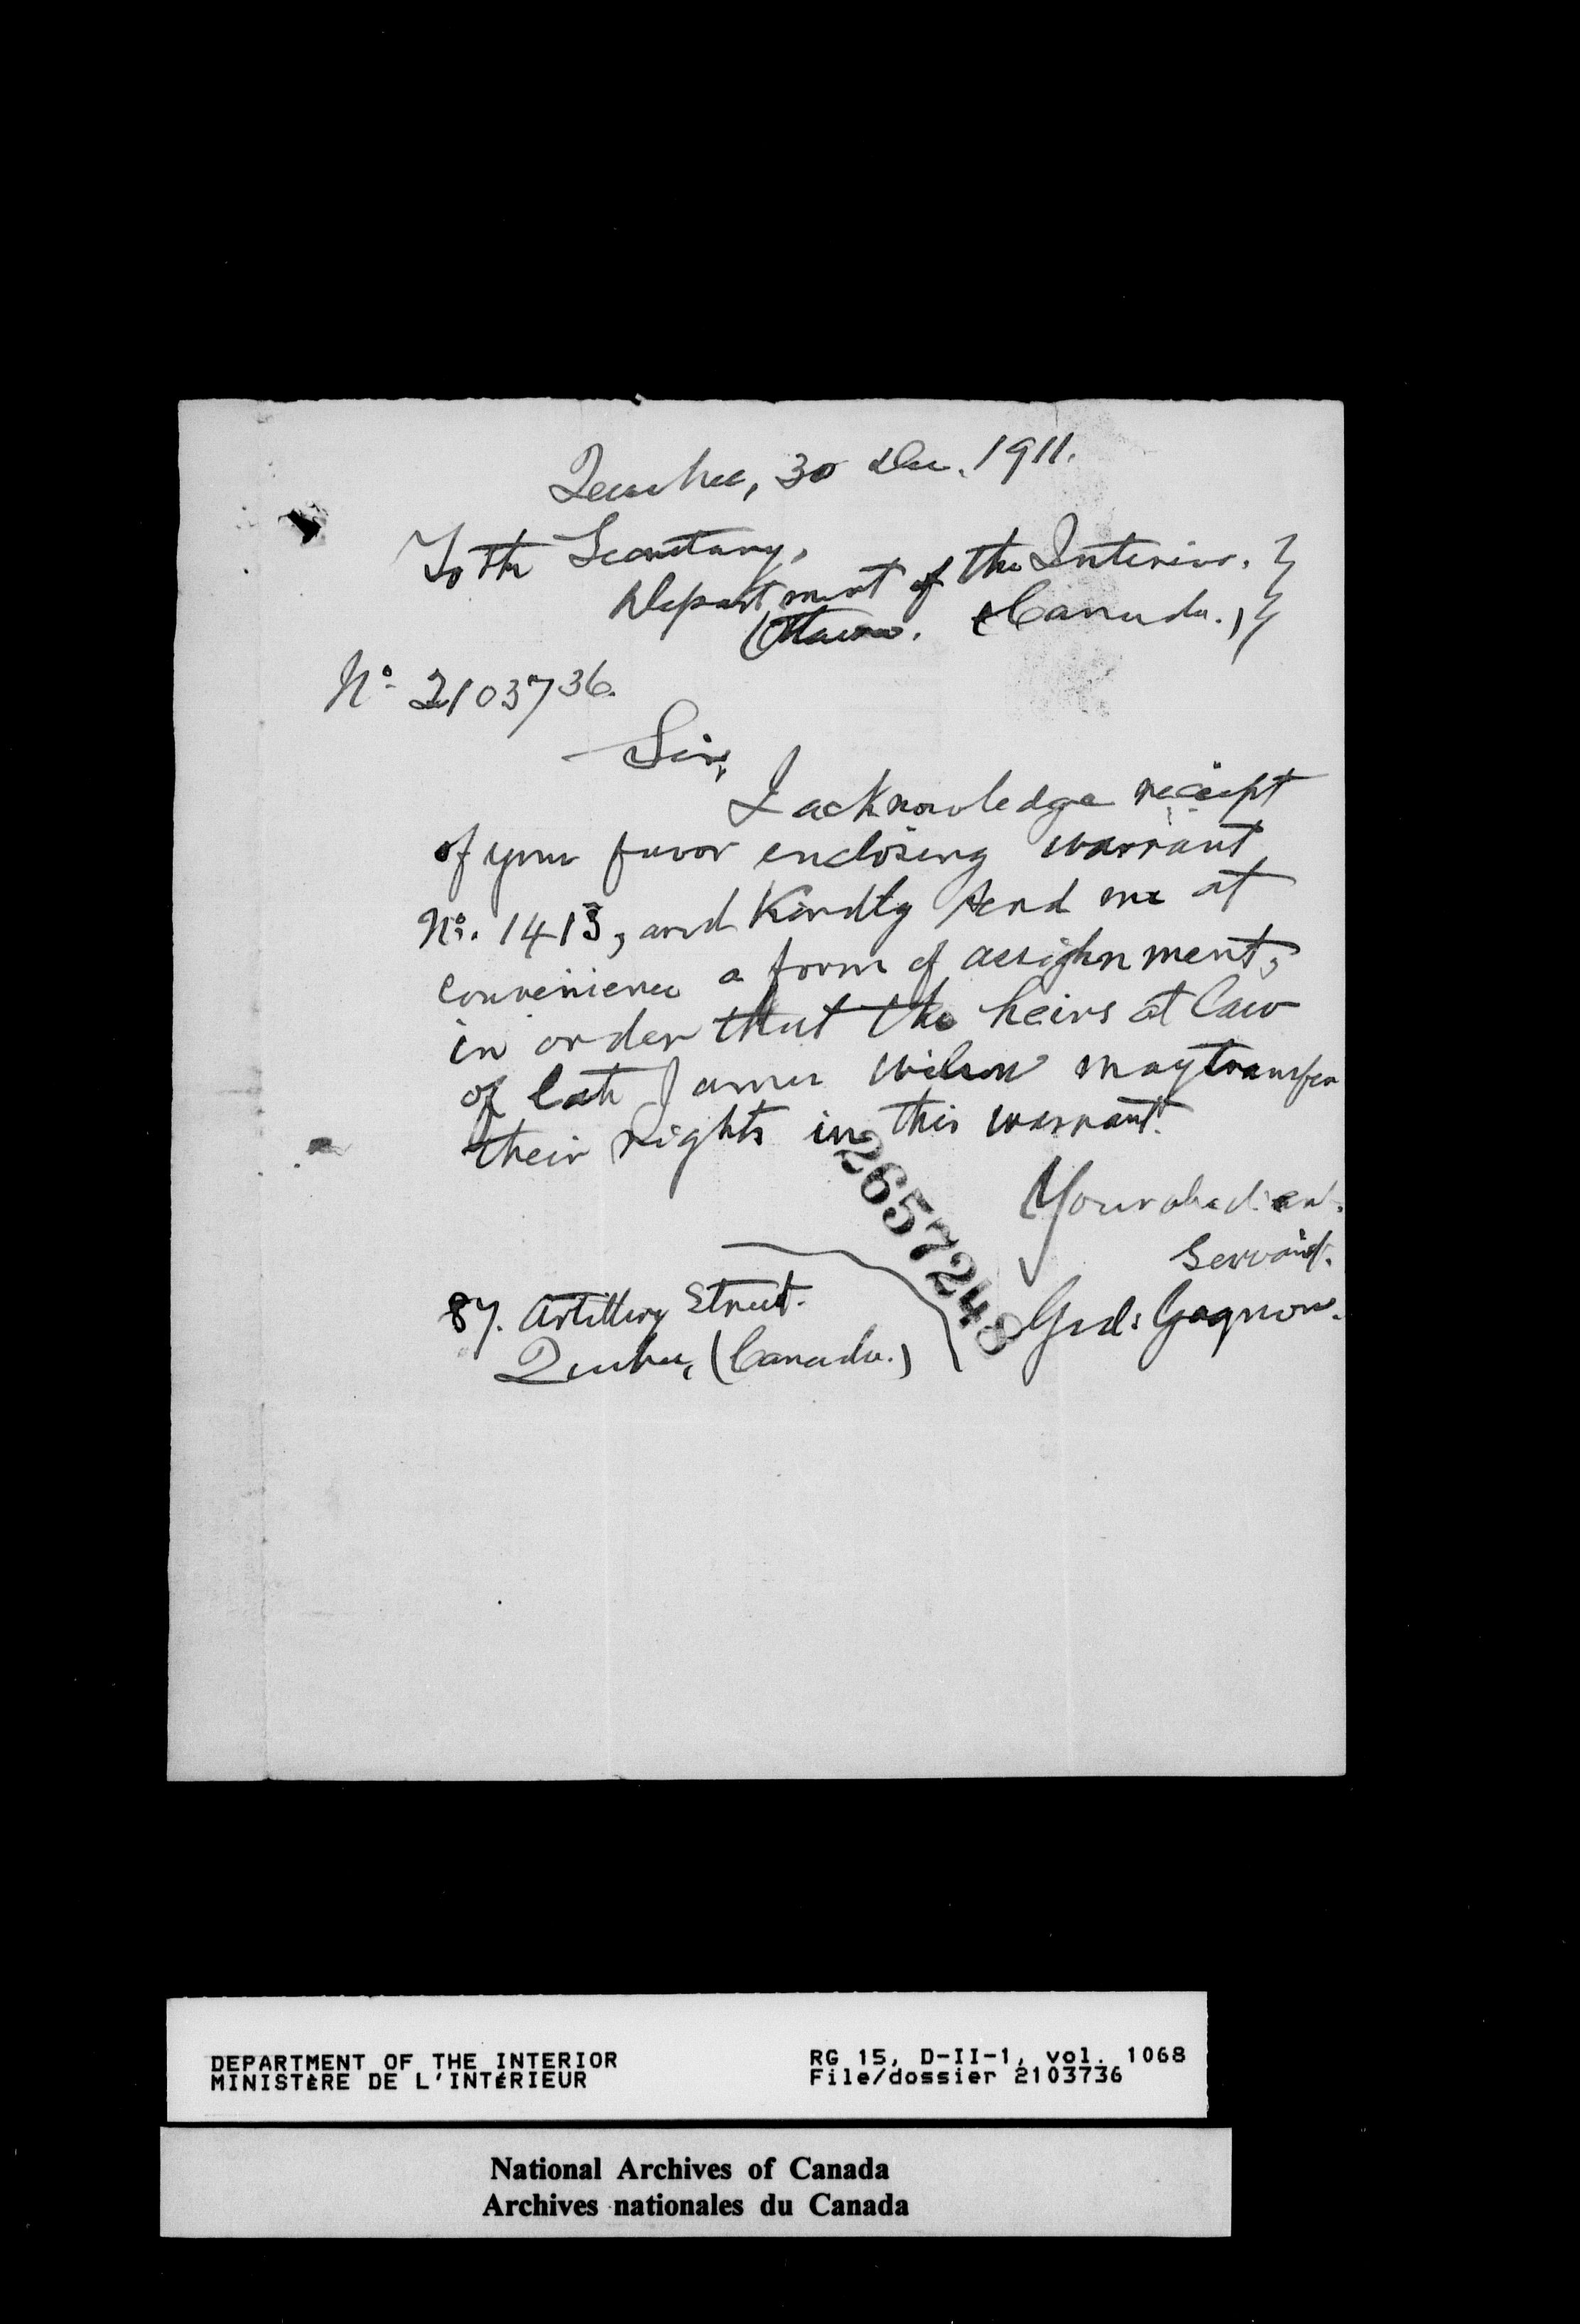 Quebec, 30 Dec. 1911.
To the Secretary,
Department of the Interior. }
Ottawa. (Canada.) }
No. 2103736.
Sir,
I acknowledge receipt
of your favor enclosing warrant
No. 1413, and Kindly send me at
convenience a form of assignment,
in order that the heirs at law
of late James Wilson may transfer
their rights in this warrant.
2657248
Your obedient
Servant.
Ged: Gagnon.
87. Artillery Street.
Quebec, (Canada.)
DEPARTMENT OF THE INTERIOR
MINISTÈRE DE L'INTÉRIEUR
RG 15, D-II-1, vol. 1068
File/dossier 2103736
National Archives of Canada
Archives nationales du Canada